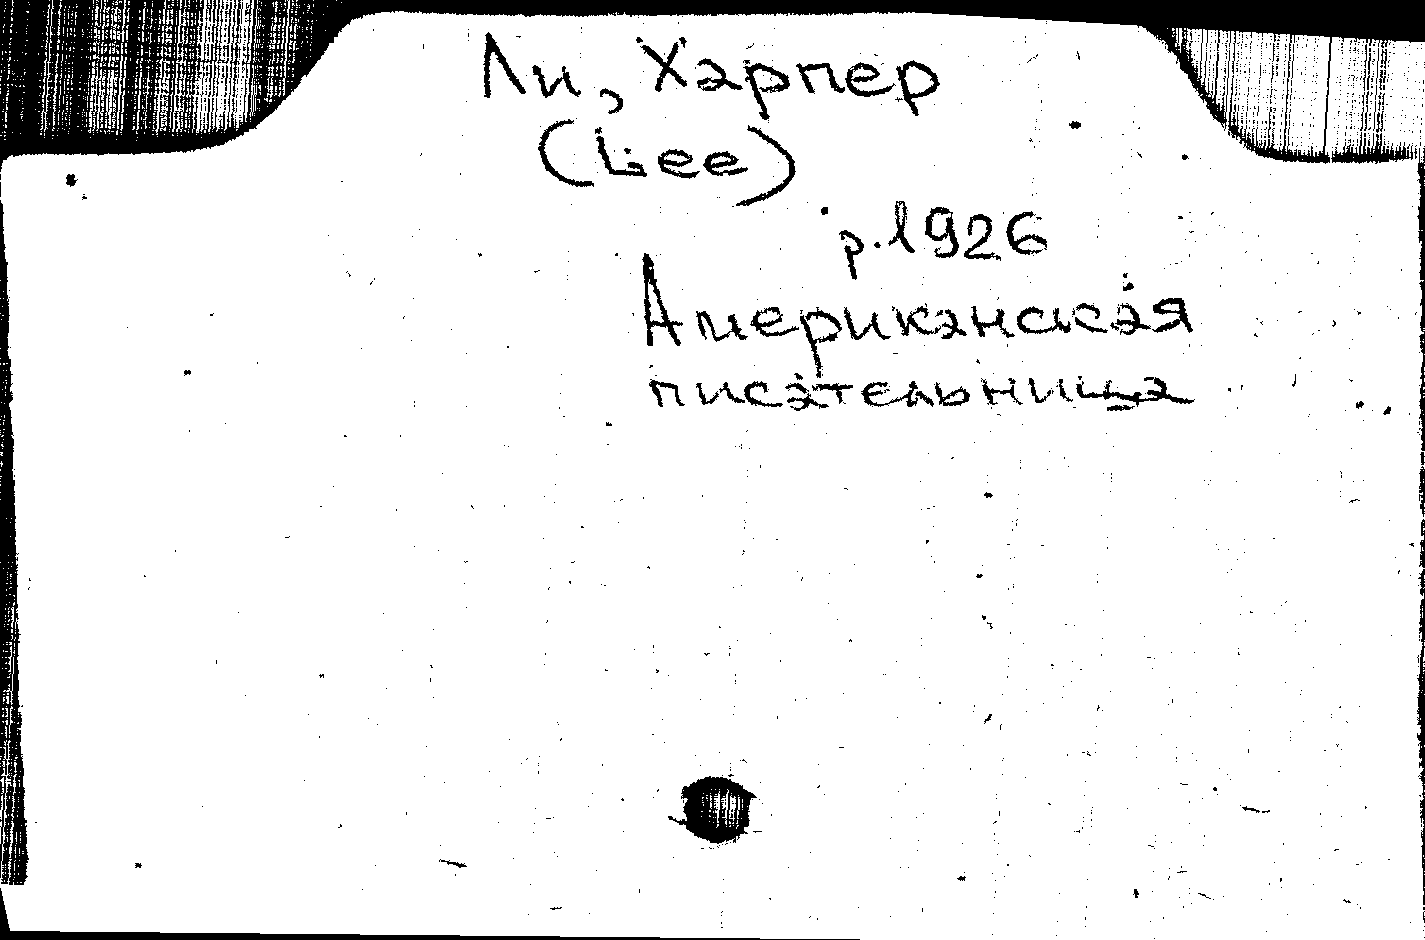 Ли, Харпер
(Lee)
р. 1926
Американская
писательница